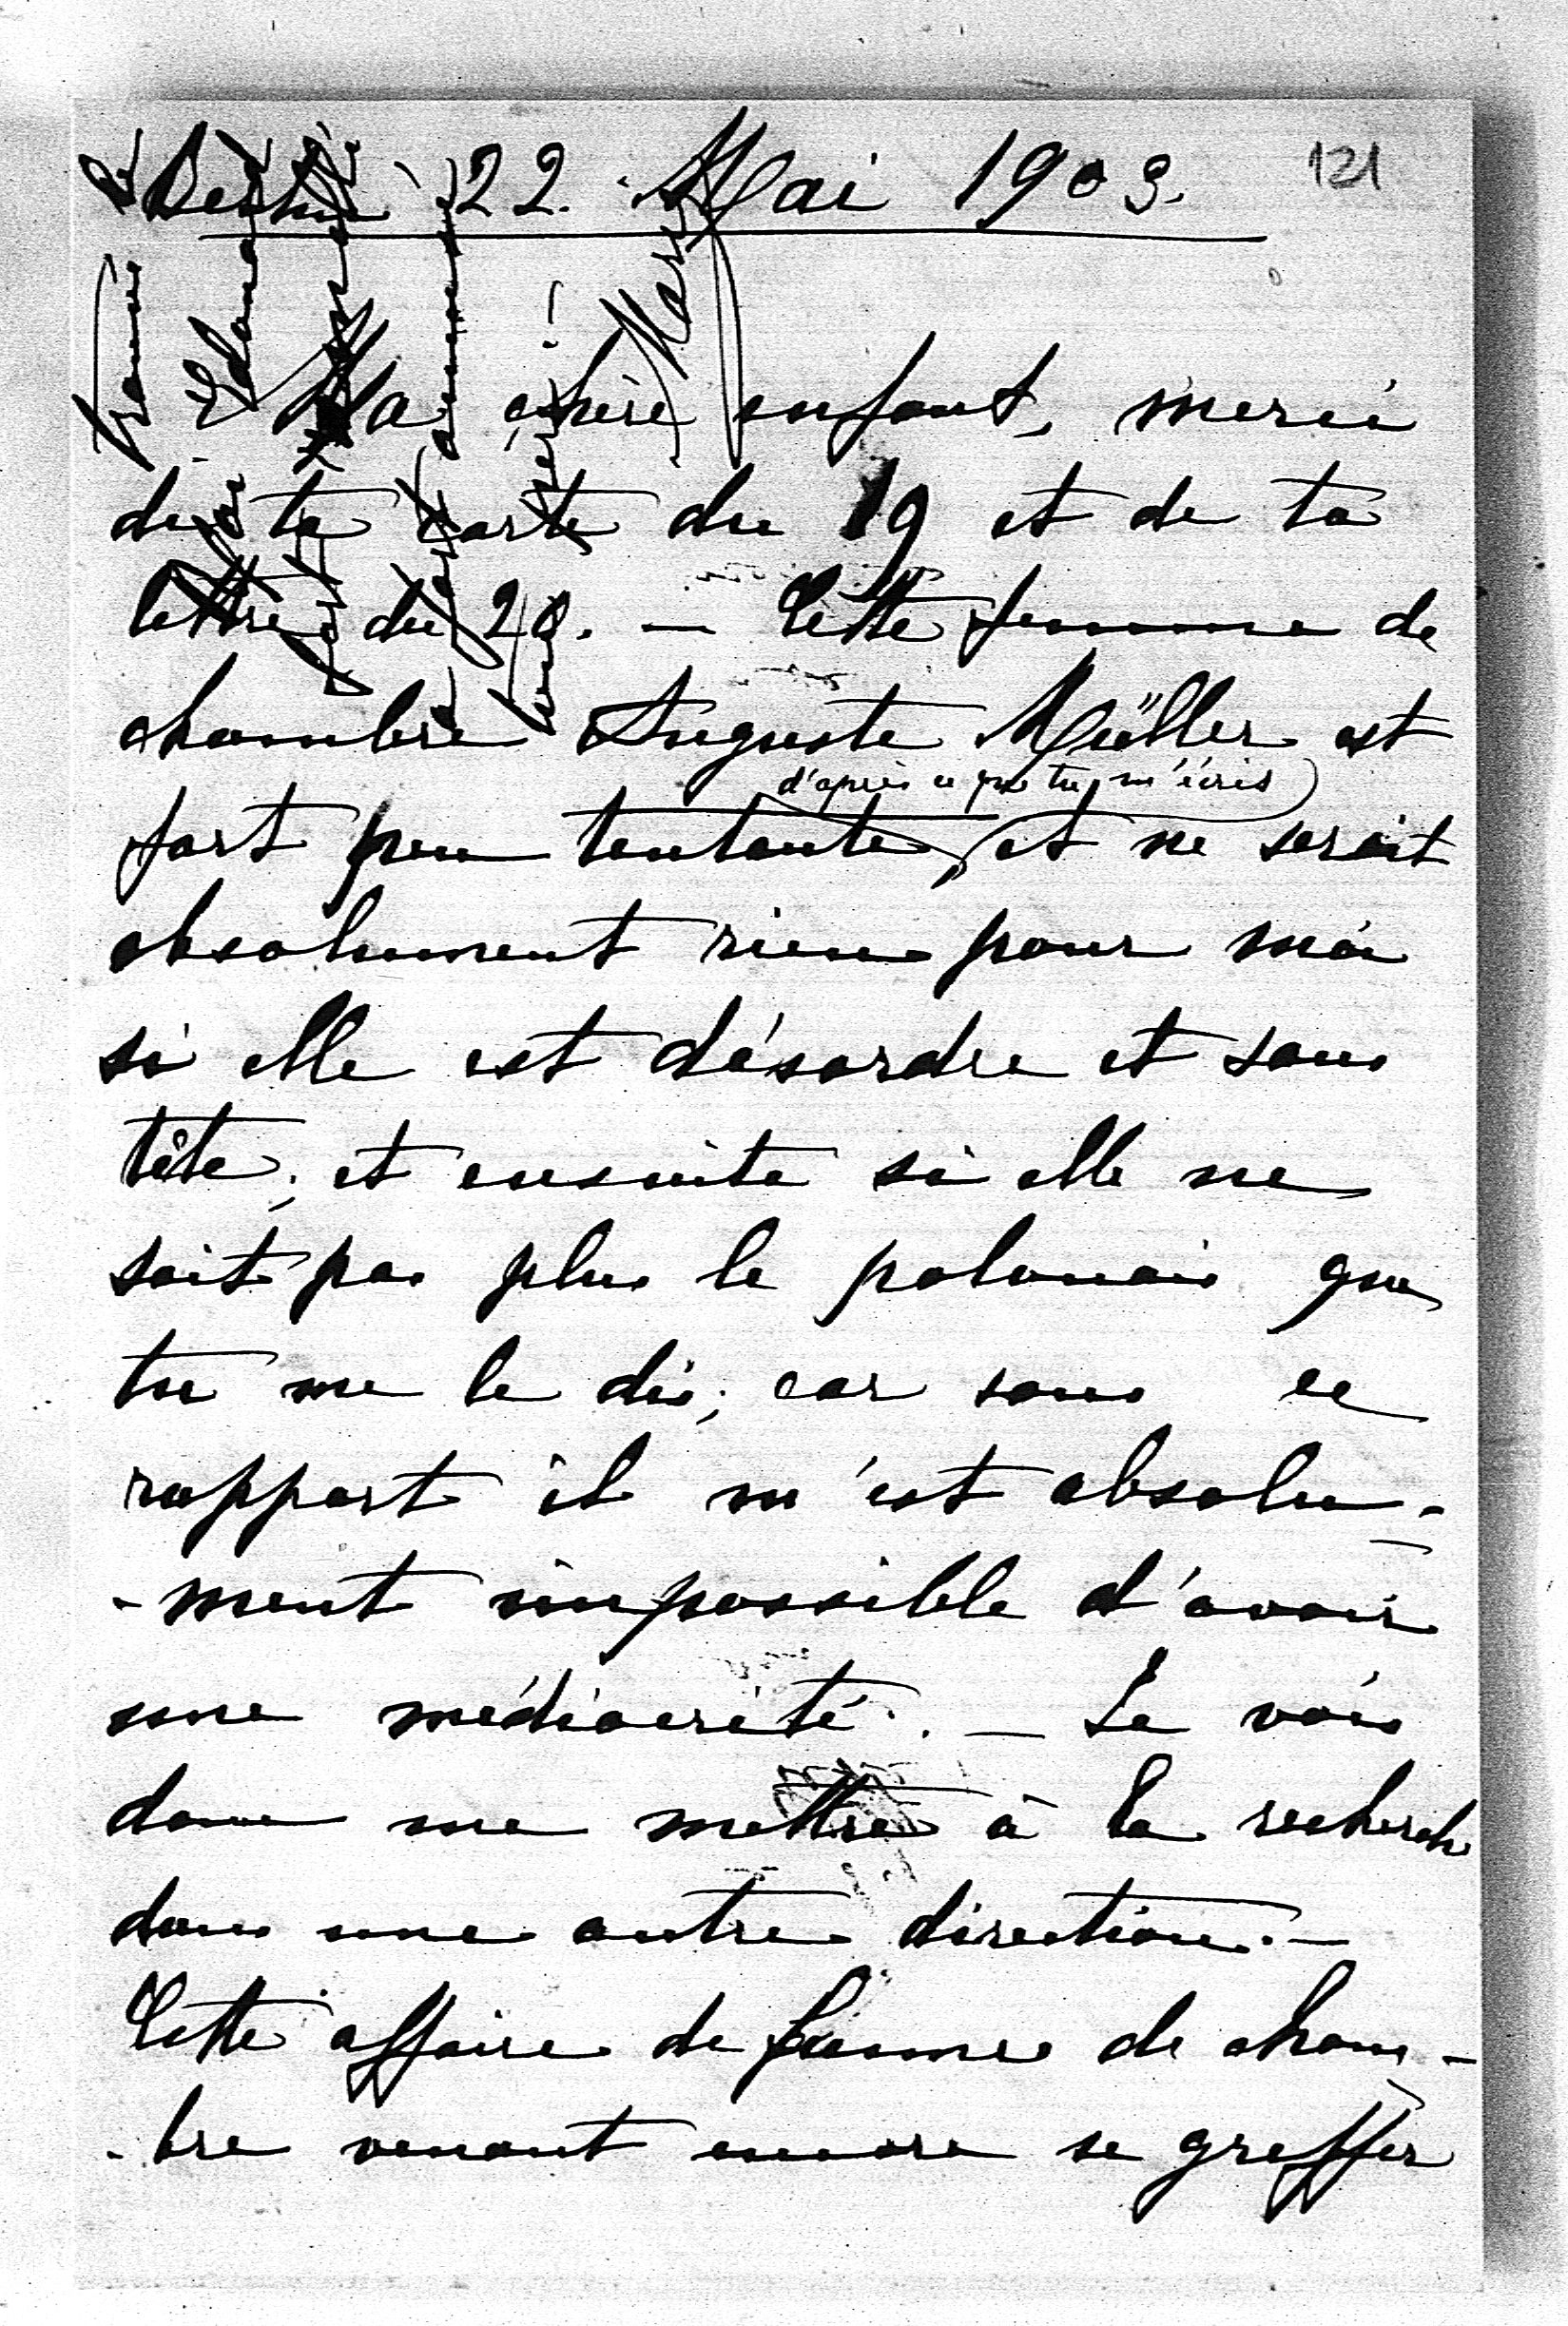 121
Berlin 22. Mai 1903.
Ma chère enfant, merci
de ta carte du 19 et de ta
lettre du 20. — Cette femme de
chambre Auguste Müller est
d'après ce que tu m'écris
fort peu tentante, et ne serait
absolument rien pour moi
si elle est désordre et sans
tête; et ensuite si elle ne
sait pas plus le polonais que
tu me le dis; car sous ce
rapport il m'est absolu-
-ment impossible d'avoir
une médiocrité. — Je vais
donc me mettre à la recherch
dans une autre direction. —
Cette affaire de femme de cham-
-bre venant encore se greffer